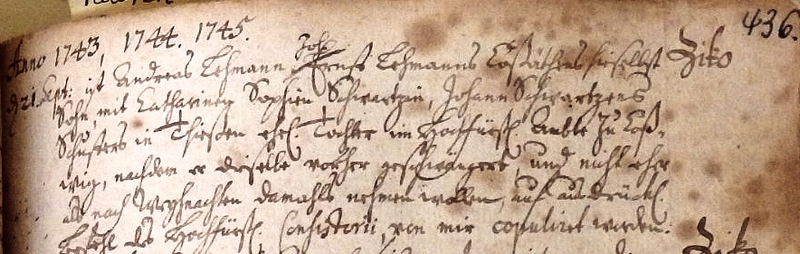 436.
Anno 1743, 1744. 1745.
d 21. Sept: ist Andreas Lehmann, Joh. Ernst Lehmanns Coßäthens hieselbst Ziko
Sohn mit Catharinen Sophien Schwartzin, Johann Schwartzens
Schusters in Thießen ehel. Tochter im Hochfürstl. Ambte zu Coß-
wig, nachdem er dieselbe vorher geschwängert, und nicht eher
als nach Weyhnachten damahls nehmen wollen, auf ausdrückl.
Befehl des Hochfürstl. Consistorii, von mir copuliret worden.
Ziko